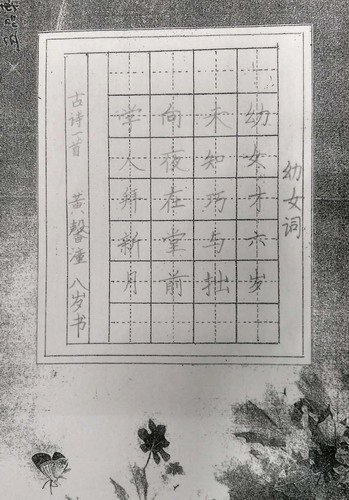 幼女词
幼女才六岁
未知巧与拙
向夜在堂前
学人拜新月
古诗一首 黄馨潼 八岁书